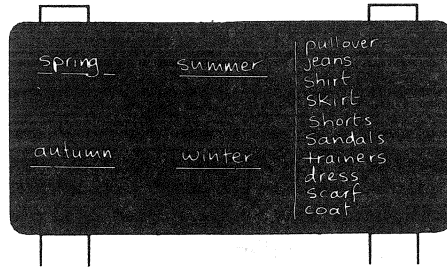 spring
summer
autumn
winter
pullover
jeans
shirt
skirt
shorts
sandals
trainers
dress
scarf
coat